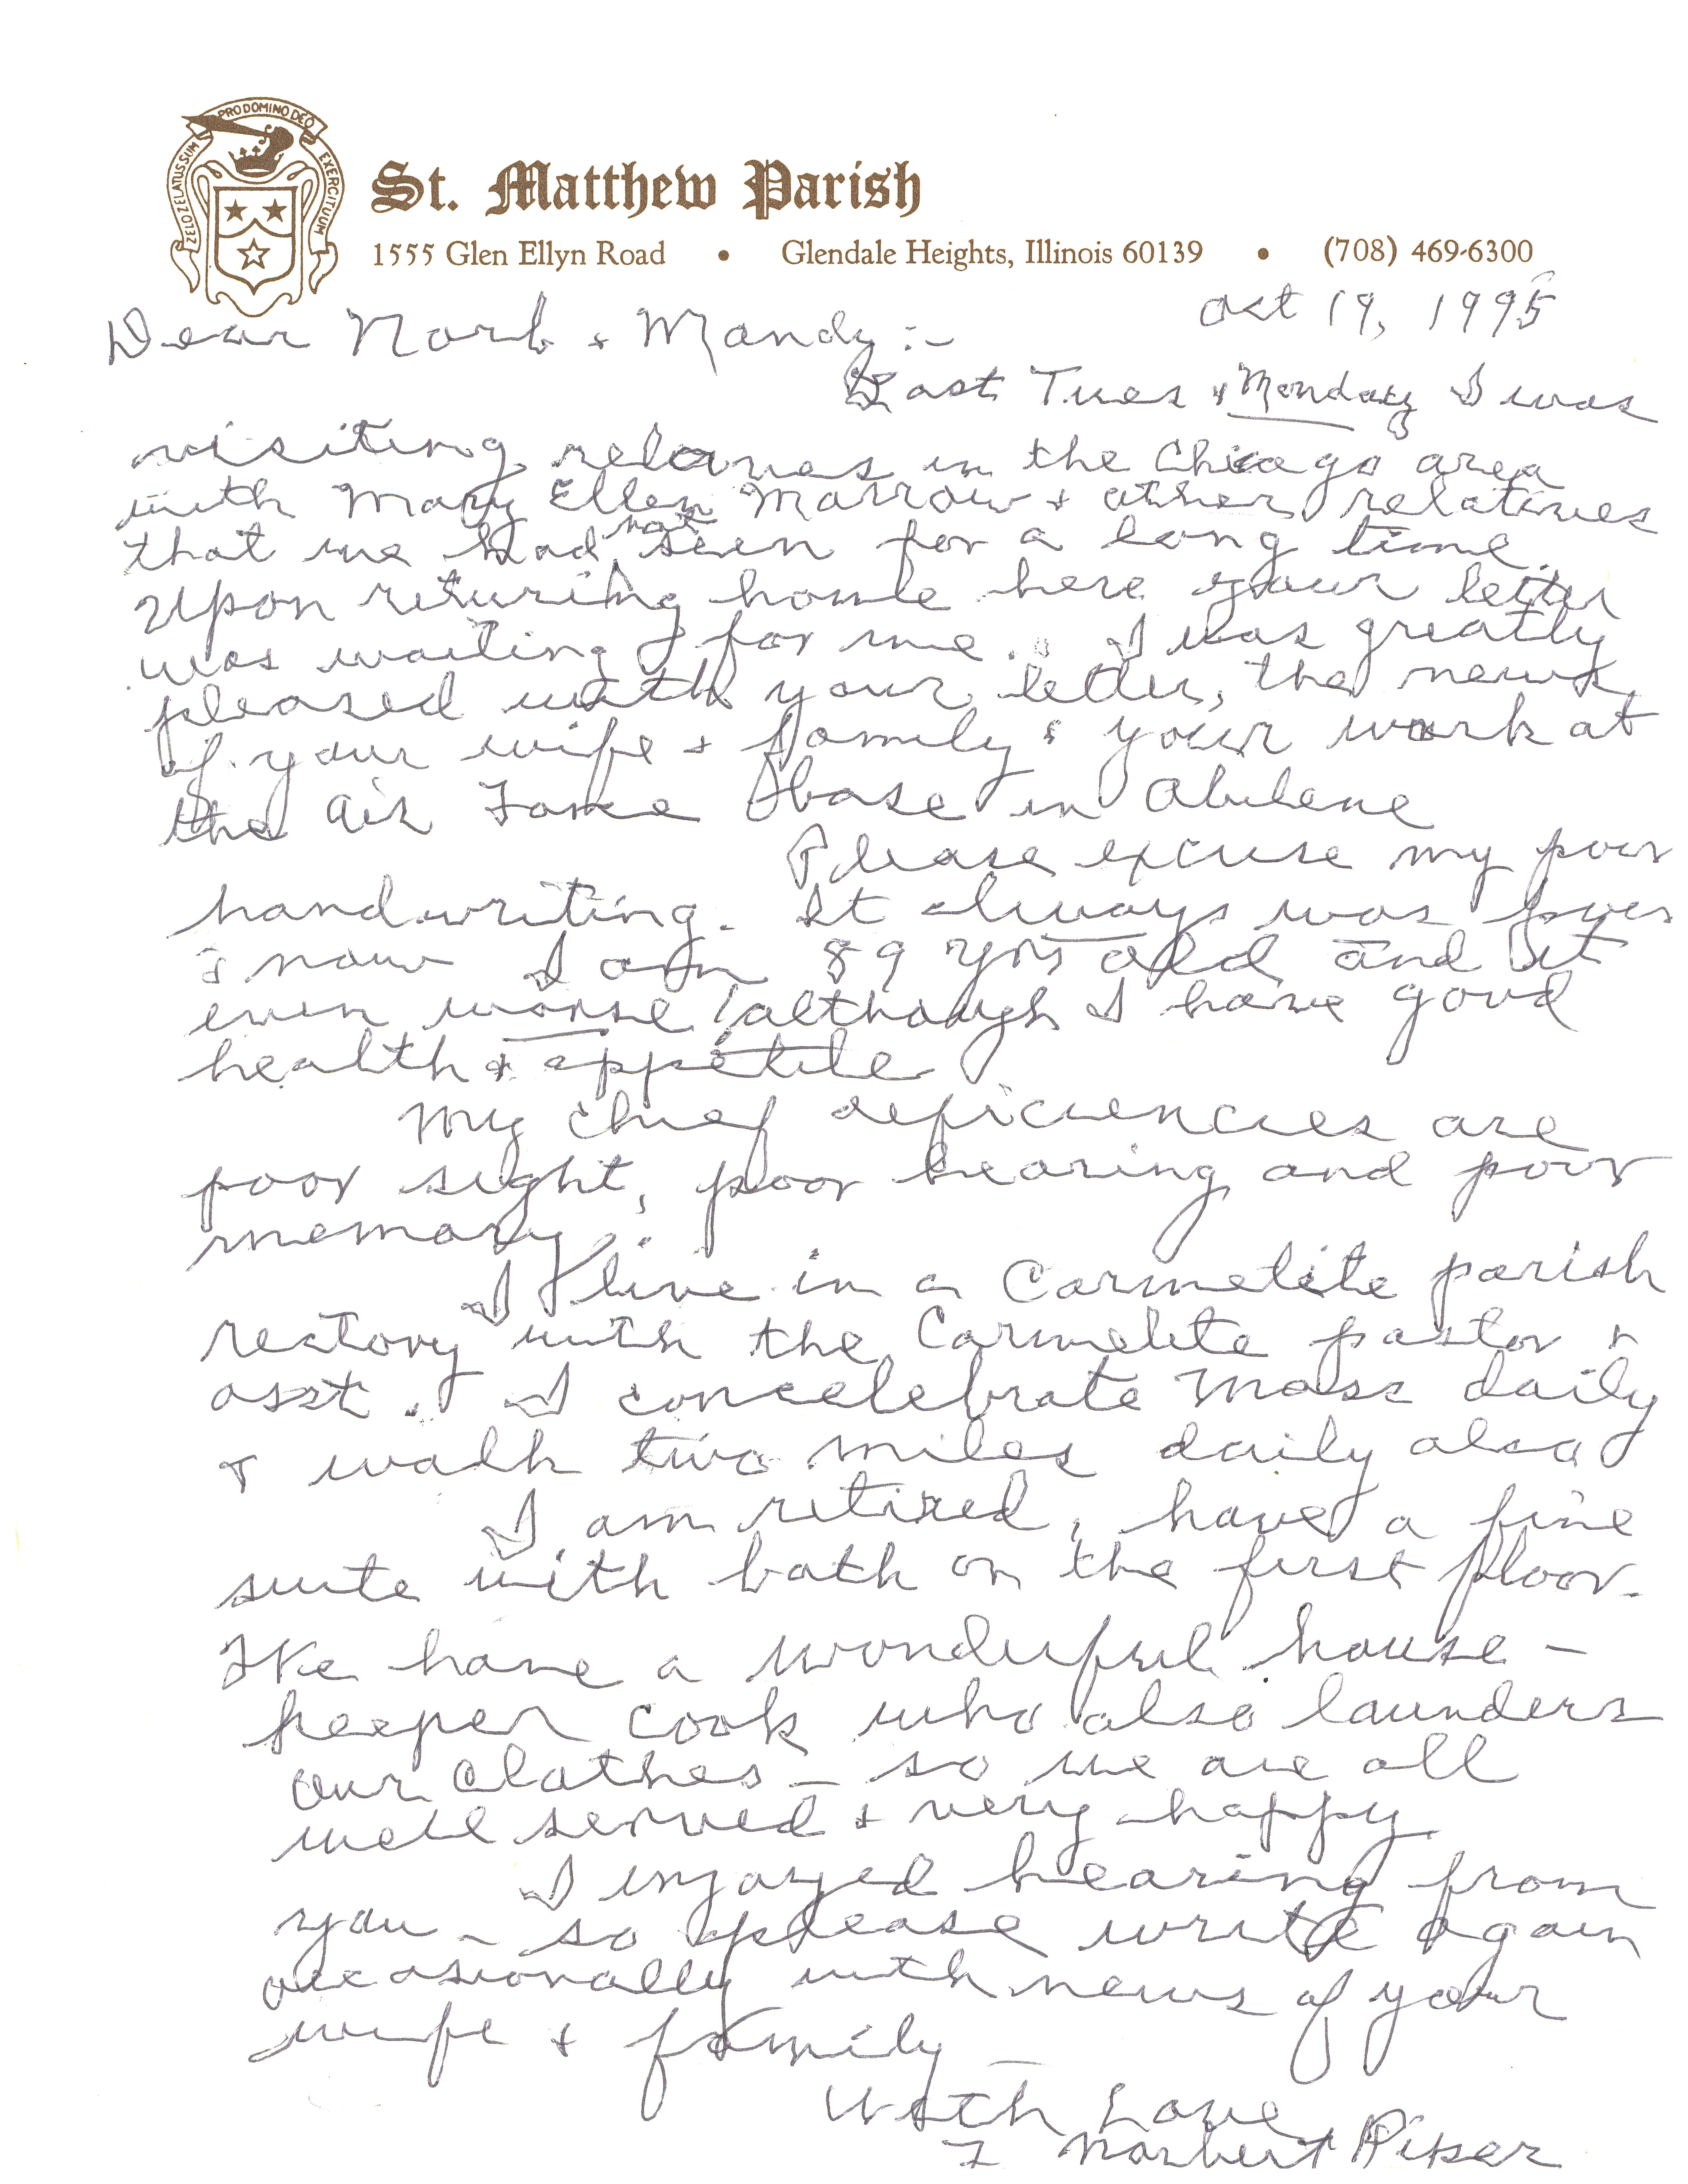 PRO DOMINO DEO
ZELO ZELATUS SUM
EXERCITUUM
St. Matthew Parish
1555 Glen Ellyn Road • Glendale Heights, Illinois 60139 • (708) 469-6300
Oct 19, 1995
Dear Norb + Mandy:-
Last Tues + Monday I was
visiting relatives in the Chicago area
with Mary Ellen Marrow + other relatives
that we had not seen for a long time.
Upon returing home here your letter
was waiting for me. I was greatly
pleased with your letter, the news
of your wife + family & your work at
the Air Force base in Abilene
Please excuse my poor
handwriting. It always was poor
& now I am 89 yrs old and it
even worse! although I have good
health & appetite
My chief deficiencies are
poor sight, poor hearing and poor
memory.
I live in a Carmelite parish
rectory with the Carmelite pastor +
asst. I concelebrate Mass daily
+ walk two miles daily also
I am retired, have a fine
suite with bath on the first floor.
We have a wonderful house-
keeper cook who also launders
our clothes – so we are all
well served + very happy
I injoyed hearing from
you – so please write again
occasionally with news of your
wife + family –
With Love
F Norbert Piper